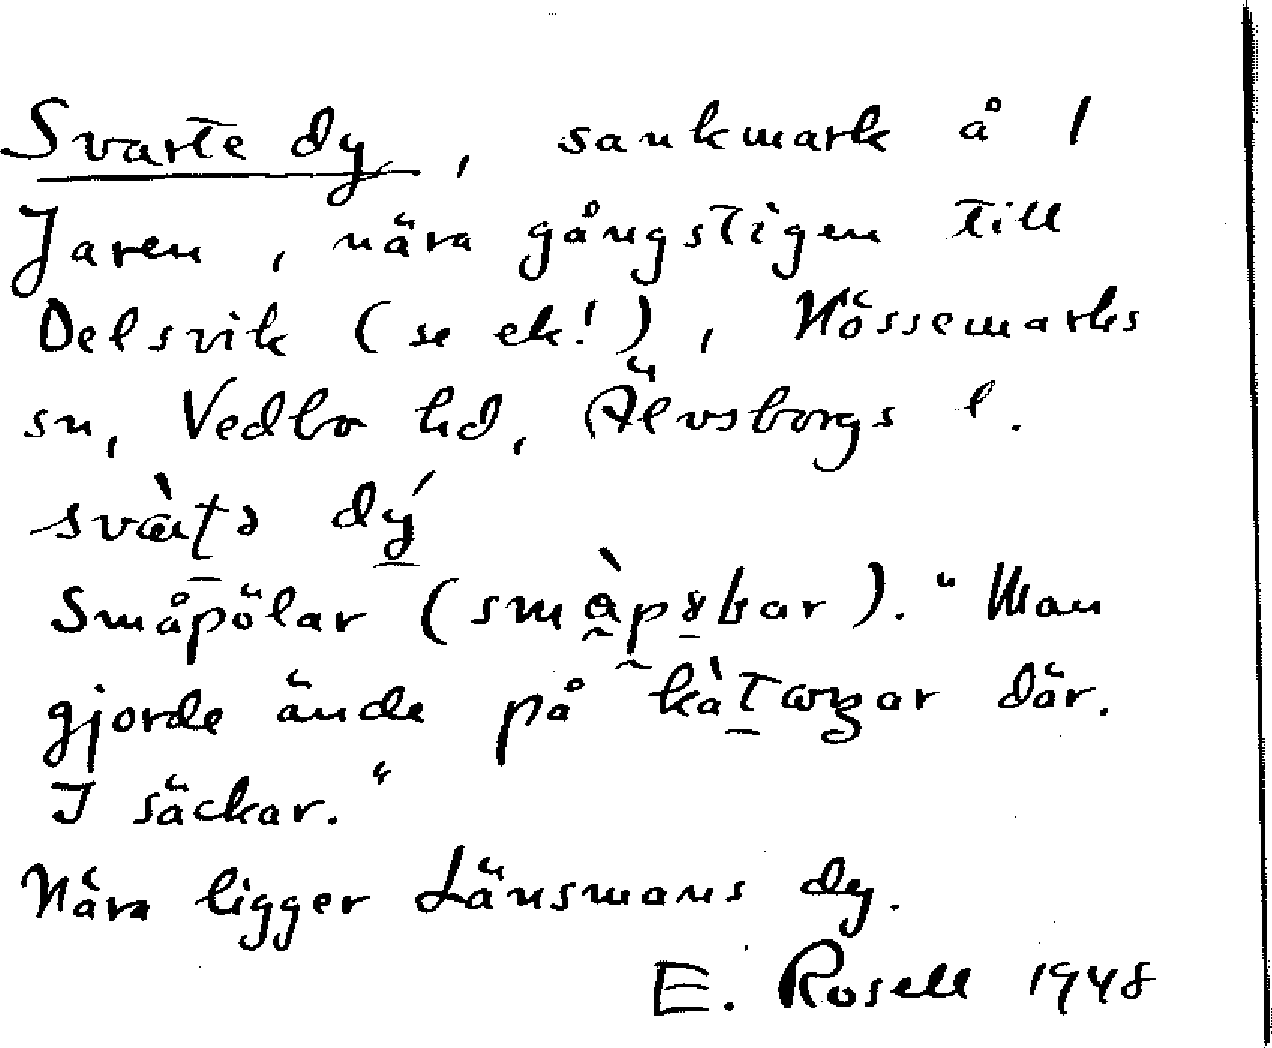 Svarte dy, sankmark å /
Jaren, nära gångstigen till
Delsvik (se ek!), Nössemarks
sn, Vedbo hd, Älvsborgs l.
Småpölar "Man
gjorde ände på där.
I säckar."
Nära ligger Länsmans dy.
E. Rosell 1948